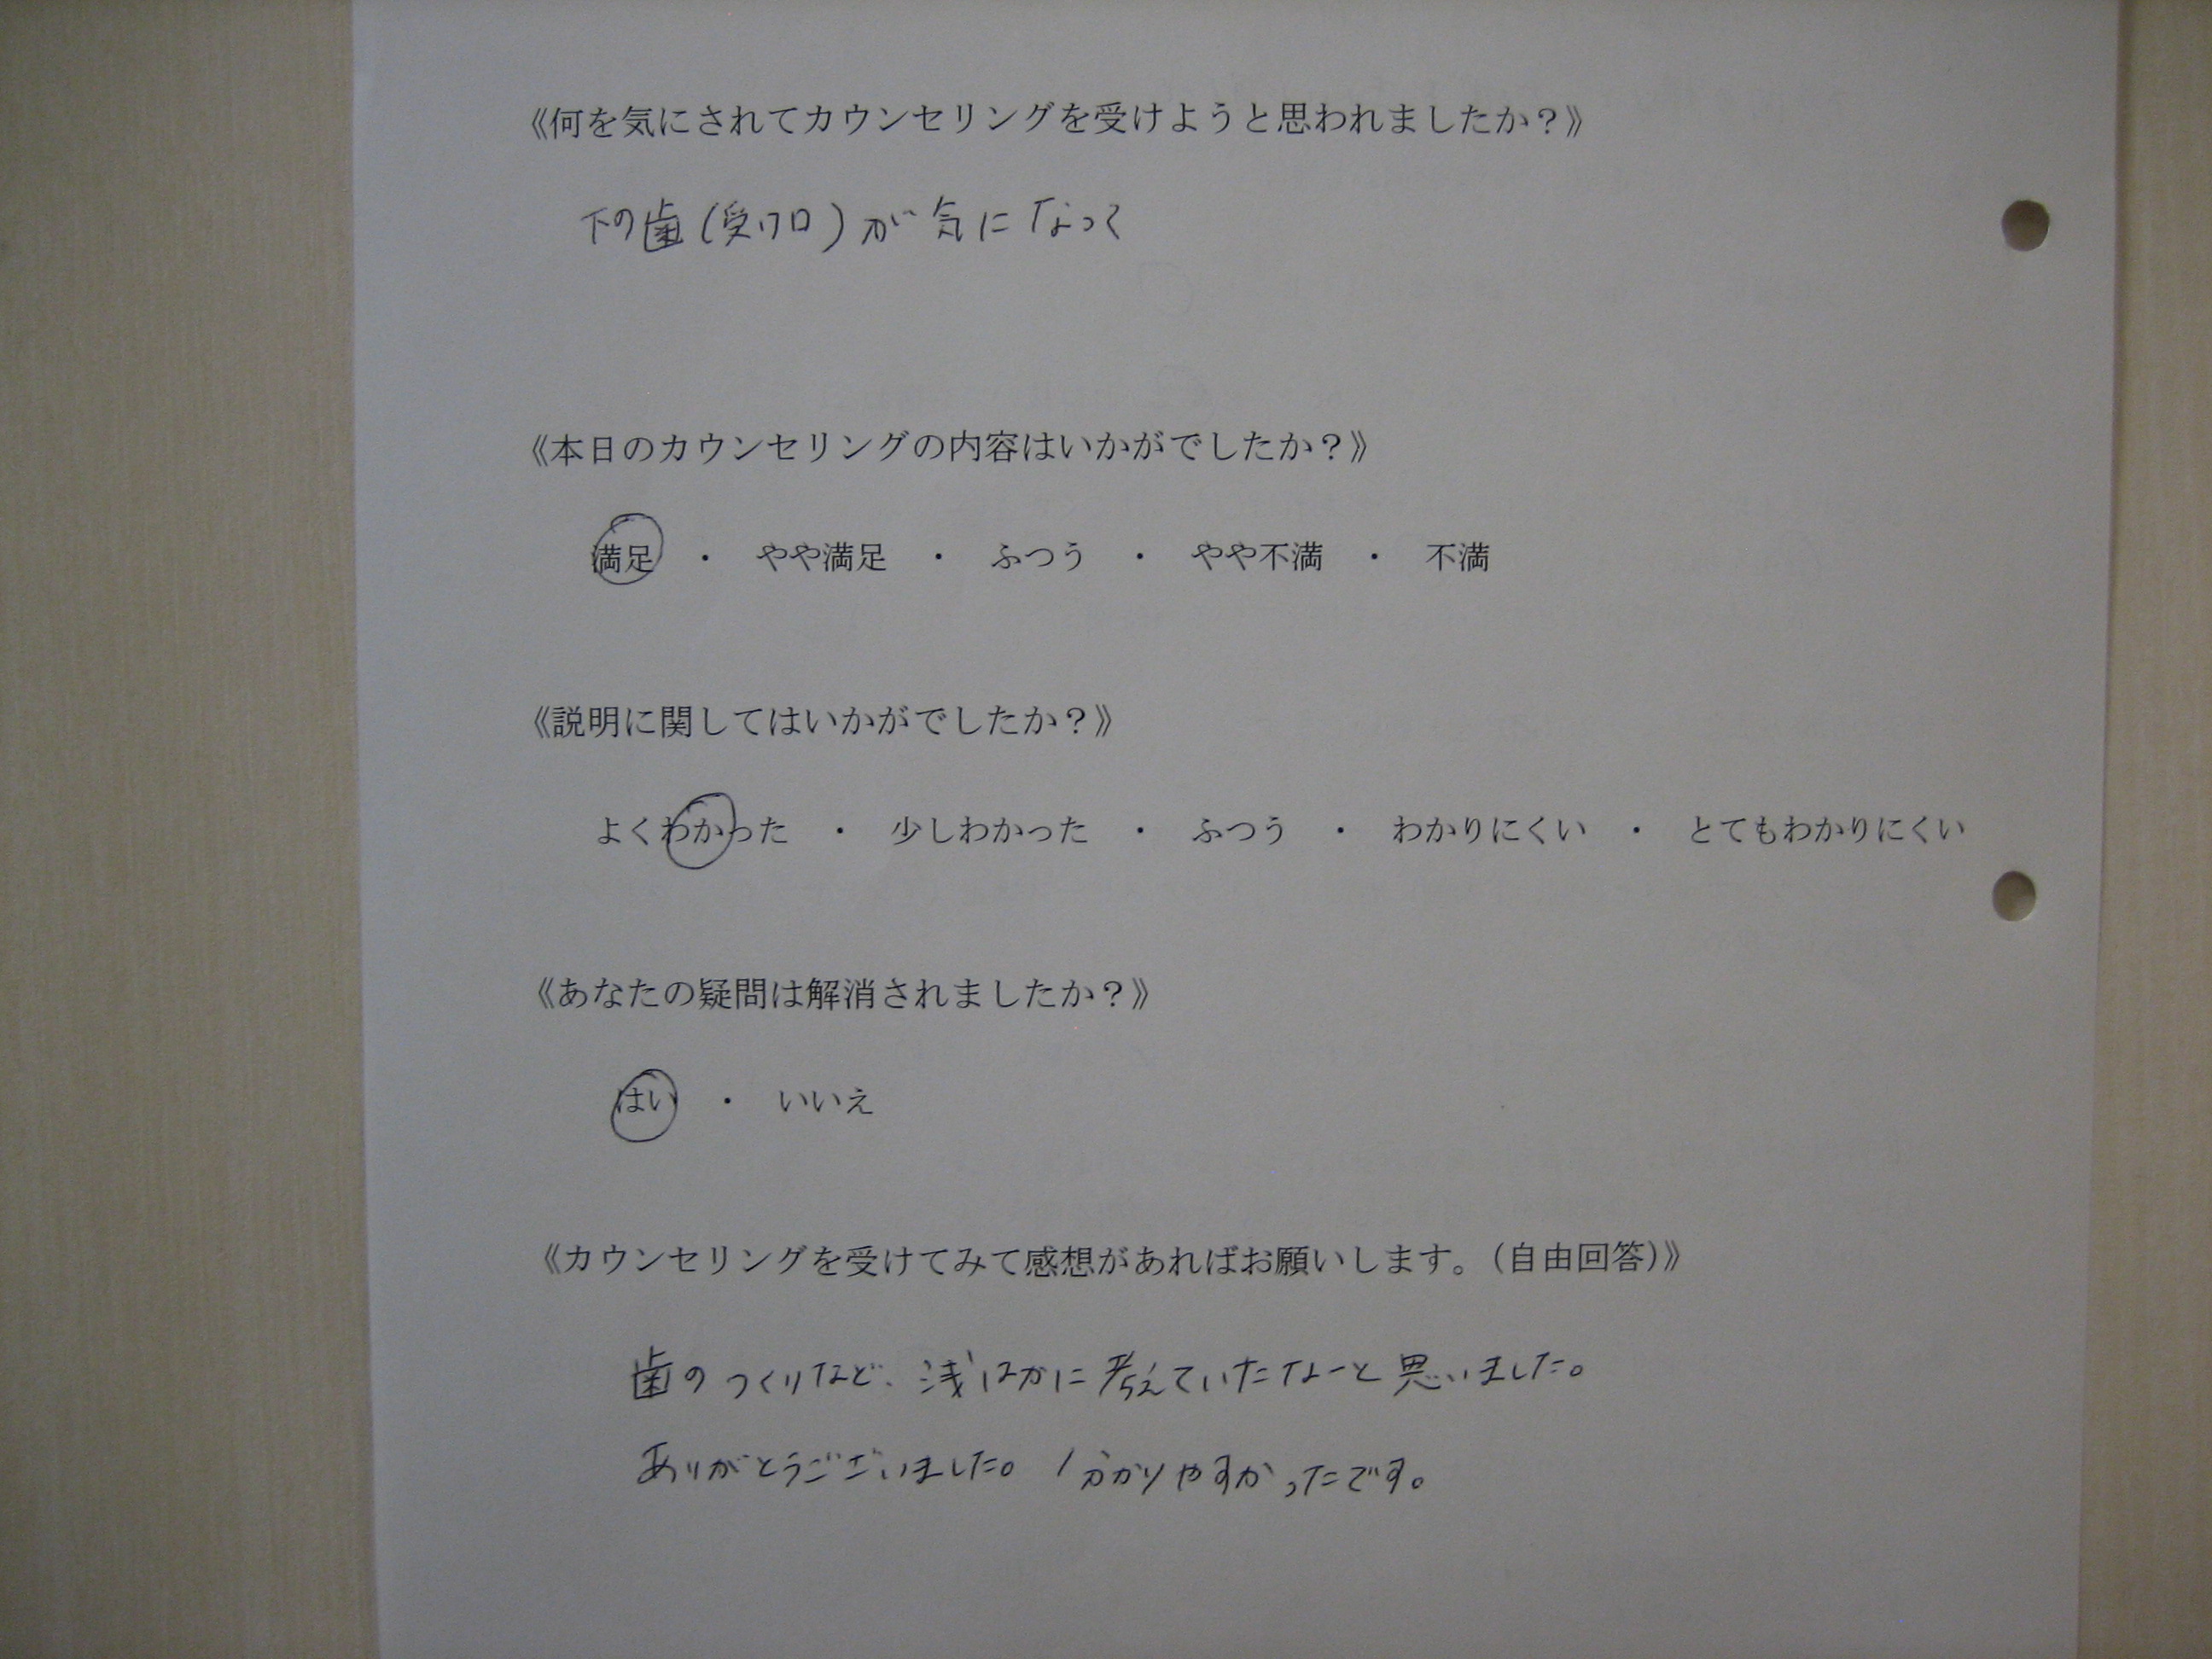 《何を気にされてカウンセリングを受けようと思われましたか？》
下の歯(受け口)が気になって
《本日のカウンセリングの内容はいかがでしたか？》
満足　・　やや満足　・　ふつう　・　やや不満　・　不満
《説明に関してはいかがでしたか？》
よくわかった　・　少しわかった　・　ふつう　・　わかりにくい　・　とてもわかりにくい
《あなたの疑問は解消されましたか？》
はい　・　いいえ
《カウンセリングを受けてみて感想があればお願いします。（自由回答）》
歯のつくりなど、浅はかに考えていたなーと思いました。
ありがとうございました。分かりやすかったです。